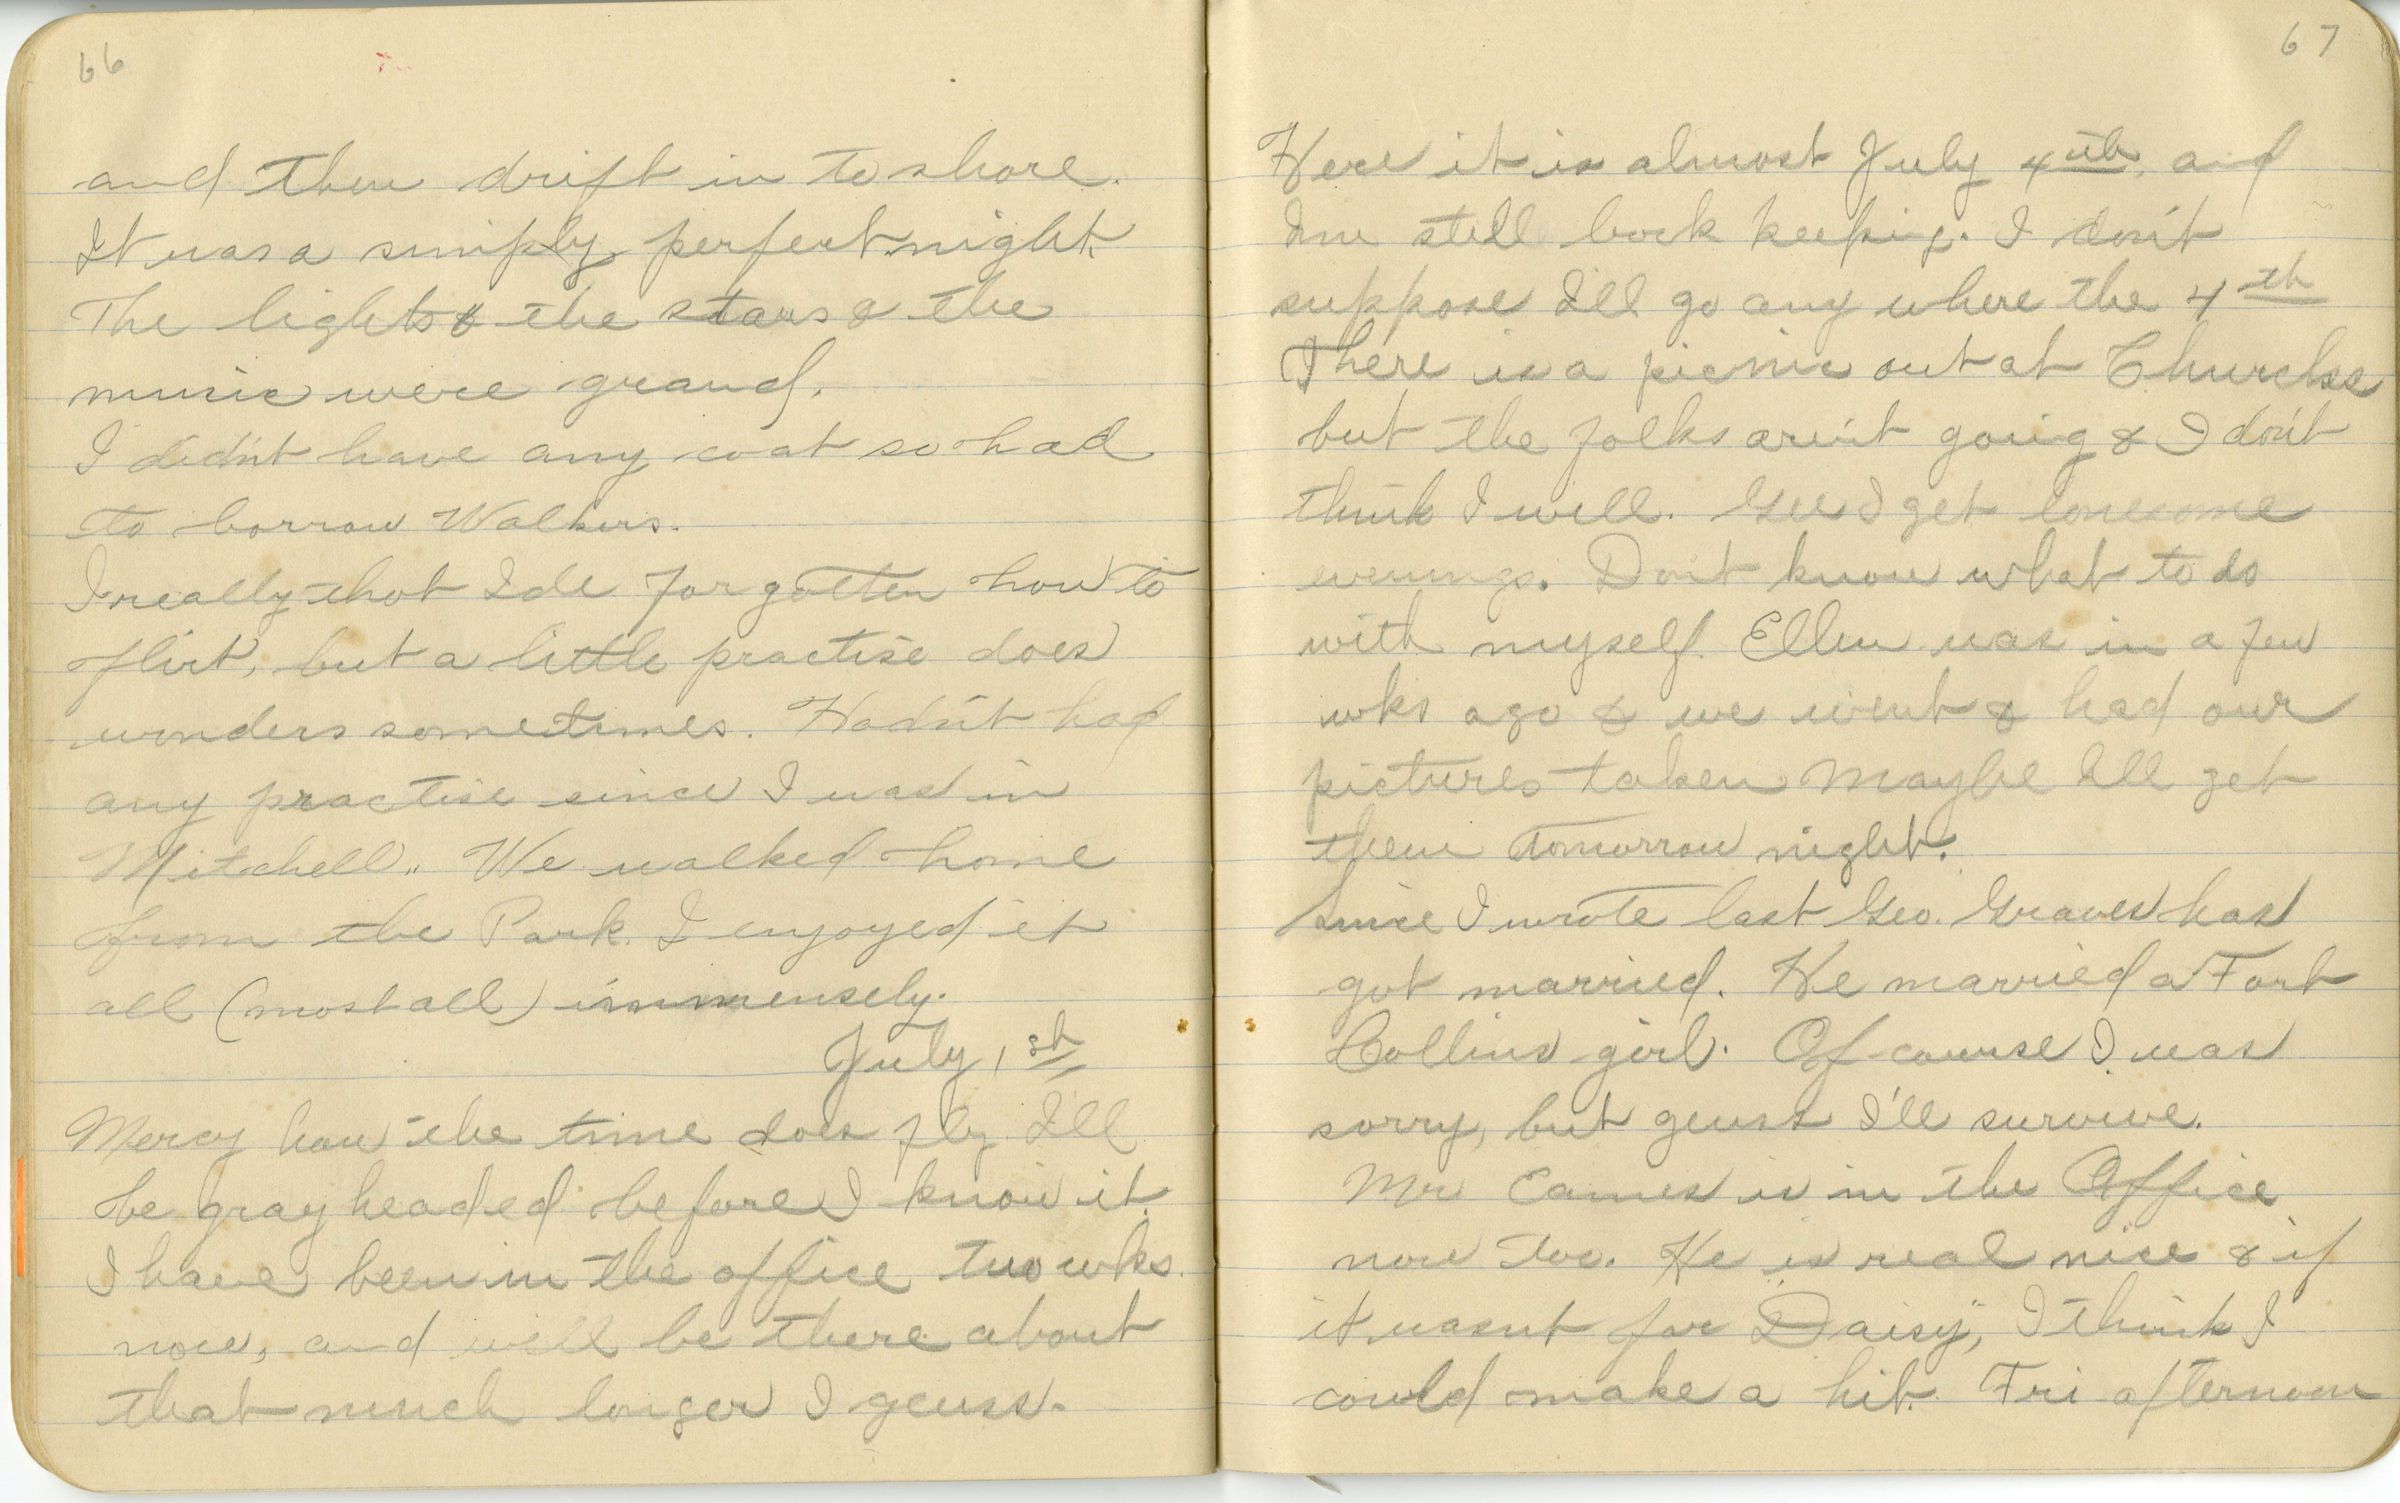 66
and then drift in to shore.
It was a simply perfect night
The lights & the stars & the
music were grand.
I didn't have any coat so had
to borrow Walkers.
I really thot I'de forgotten how to
flirt, but a little practise does
wonders sometimes. Hadn't had
any practise since I was in
Mitchell. We walked home
from the Park. I enjoyed it
all (most all) immensely.
July 1st
Mercy how the time does fly. I'll
be gray headed before I know it.
I have been in the office two wks.
now, and will be there about
that much longer I geuss.
67
Here it is almost July 4th, and
Im still book keeping. I don't
suppose I'll go any where the 4th
There is a picnic out at
but the folks aren't going & I don't
think I will. Gee I get lonesome
evenings. Don't know what to do
with myself. Ellen was in a few
wks ago & we went & had our
pictures taken Maybe I'll get
them tomorrow night.
Since I wrote last Geo. Graves has
got married. He married a Fort
Collins girl. Of course I was
sorry, but geuss I'll survive.
Mr. Eames is in the Office
now too. He is real nice & if
it wasnt for Daisy, I think I
could make a hit. Fri afternoon